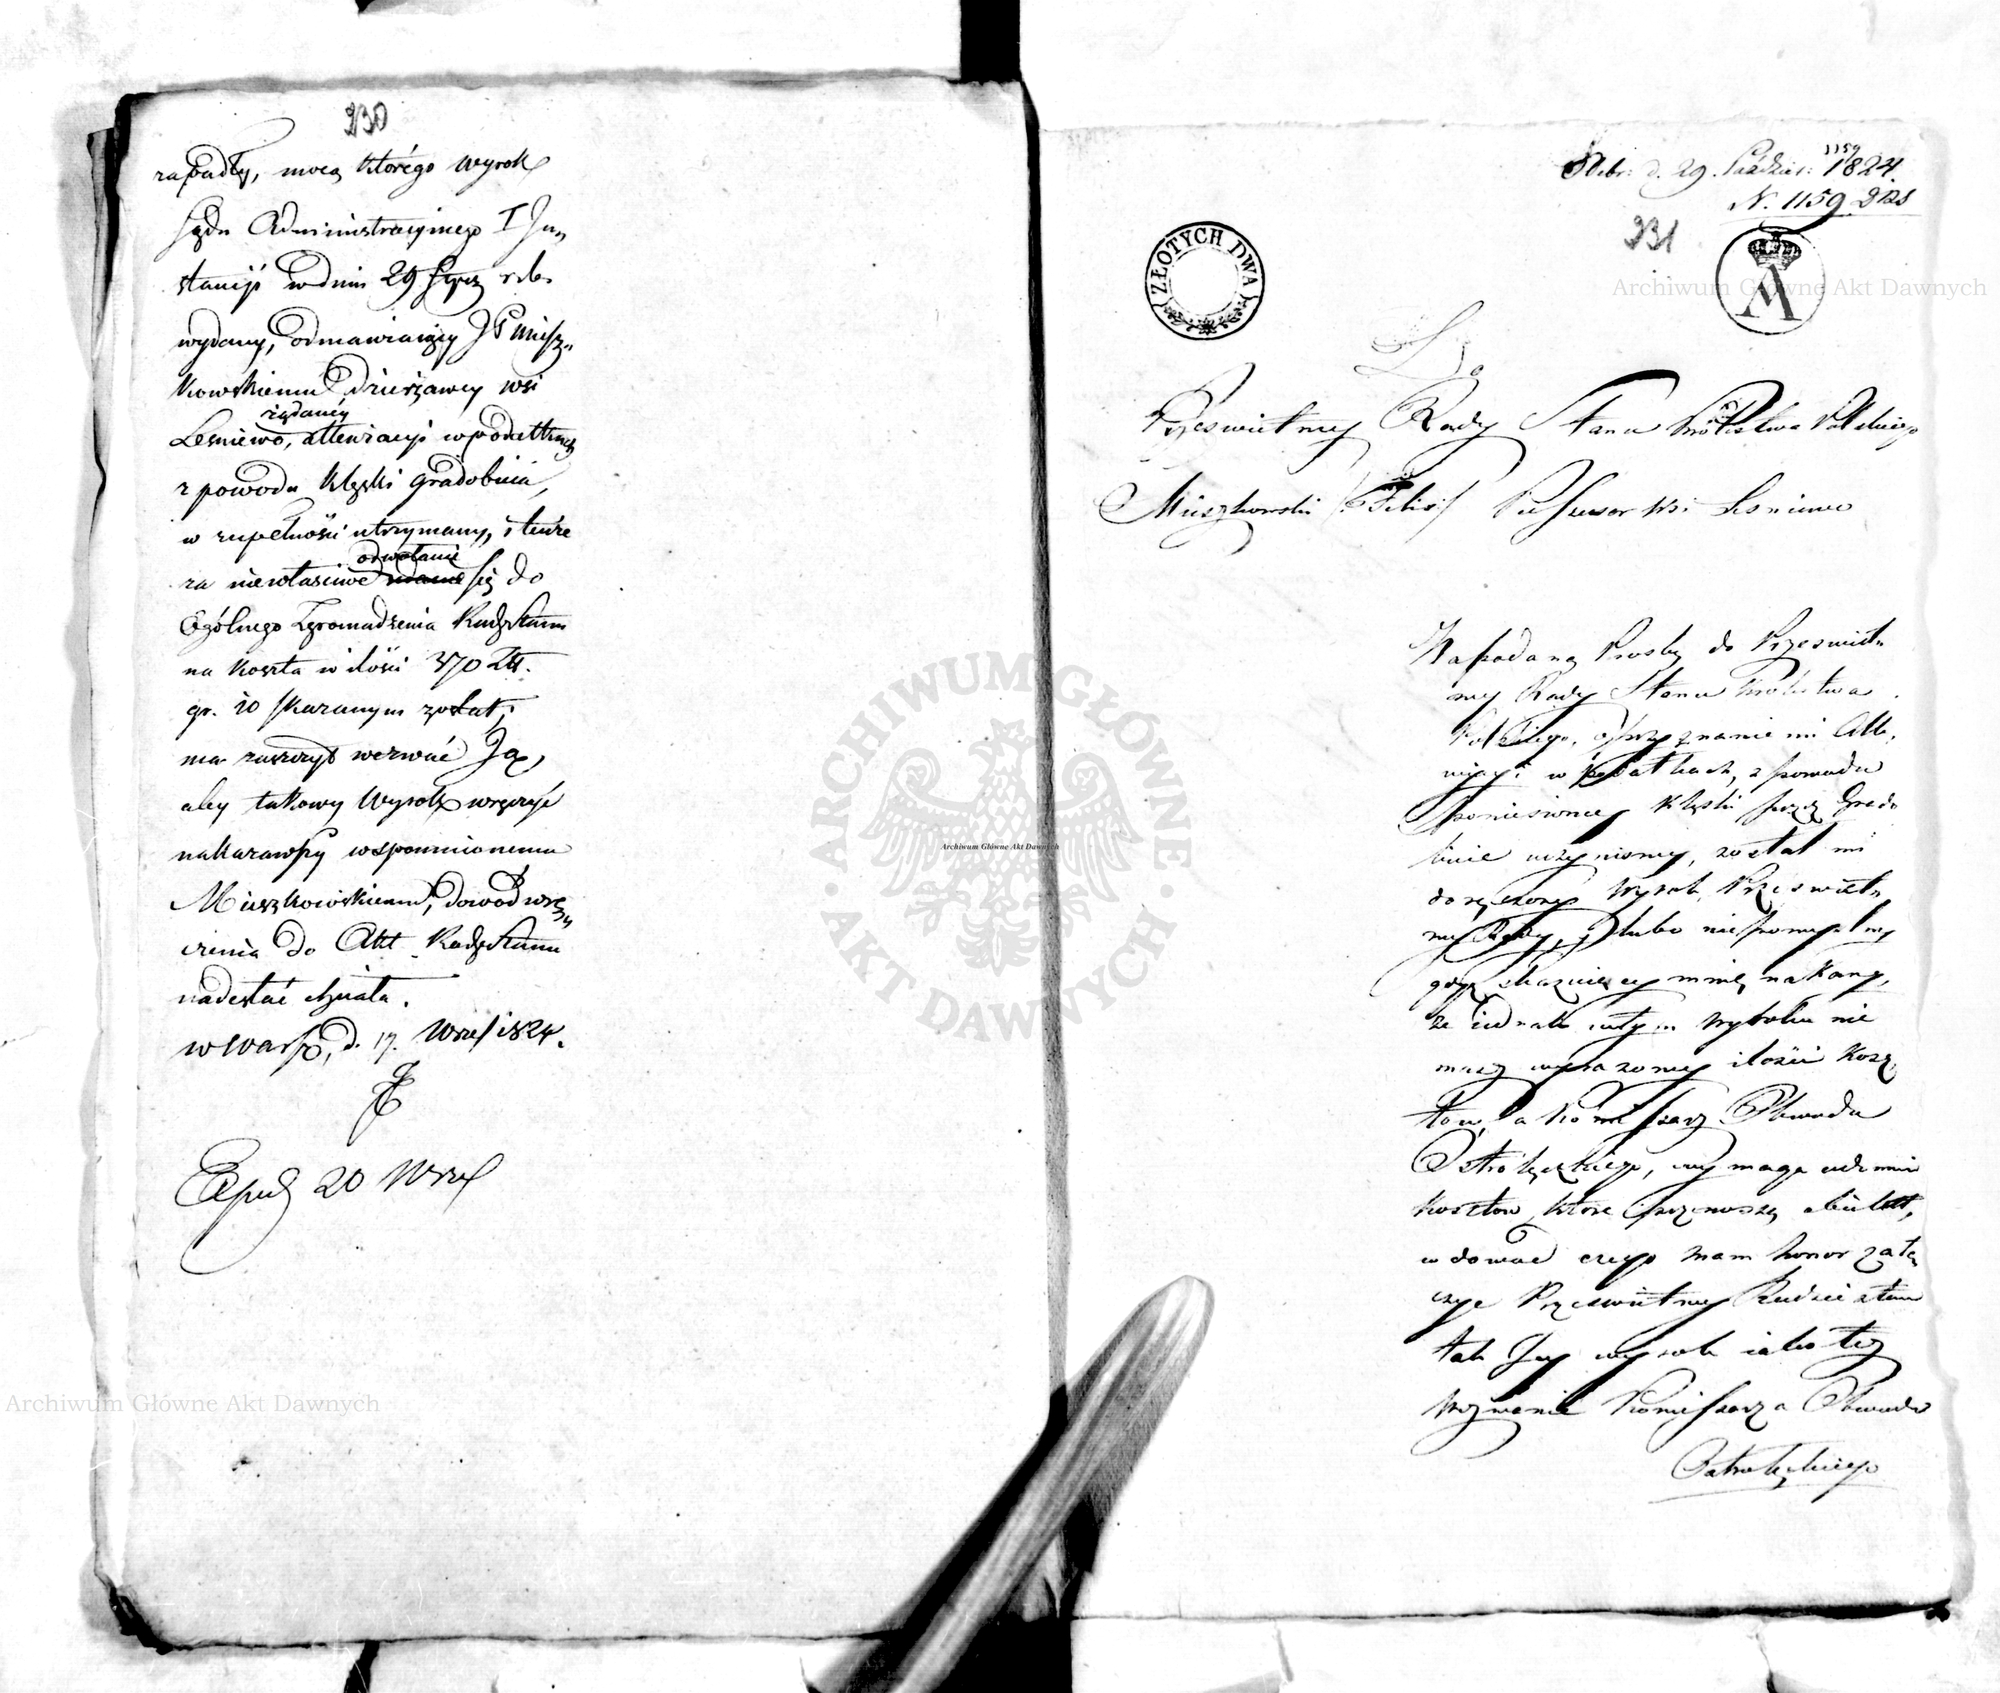 230
zapadły, mocą którego wyrok
Sądu Administracyjnego I Jn„
stancji w dniu 29 Stycz r. b.
wydany, odmawiaiący JP Miesz„
kowskiemu dzierżawcy wsi
żądaney
Leśniewo, allewiacji w podatkach
z powodu klęski gradobicia,
w zupełności utrzymany, i tenże
odwołanie
za niewłaściwe się do
Ogólnego Zgromadzenia Rady Stanu
na koszta w ilości 370 Złt.
gr. 10 skazanym został;
ma zaszczyt wezwać Ją,
aby takowy Wyrok wręczyć
nakazawszy wspomnionemu
Mieszkowskiemu, dowód wrę„
czenia do Akt Rady Stanu
nadesłać chciała.
w Warsz, d. 17. Wrześ 1824.
Exped 20 Wrześ
1159
Odebr: d. 29. Paździer: 1824.
N. 1159
231
ZŁOTYCH DWA
Do
Prześwietney Rady Stanu Królestwa Polskiego
Mieszkowski /Felix/ Possessor Wsi Lesniewo
Na podaną Prosbę do Prześwietn
ney Rady Stanu Królestwa
Polskiego, o przyznanie mi Alle„
wiacyi w podatkach, z powodu
poniesioney klęski przez Grado
bicie uczynioney, został mi
doręczony Wyrok Prześwietn
ney Rady, lubo niepomyślny
gdyż skazuiący mnię na kary,
że iednak w tym Wyroku nie
masz wyrażoney ilości Kosz„
tów, a Kommissarz Obwodu
Ostrołęckiego, wymaga odemnie
kosztów które przenoszą
w dowód czego mam honor załą
czyć Prześwietney Radzie
tak Jey wyrok iako też
Wezwanie Kommissarza Obwodu
Ostrołęckiego
Archiwum Główne Akt Dawnych
ARCHIWUM GŁÓWNE · AKT DAWNYCH ·
Archiwum Główne Akt Dawnych
Archiwum Główne Akt Dawnych